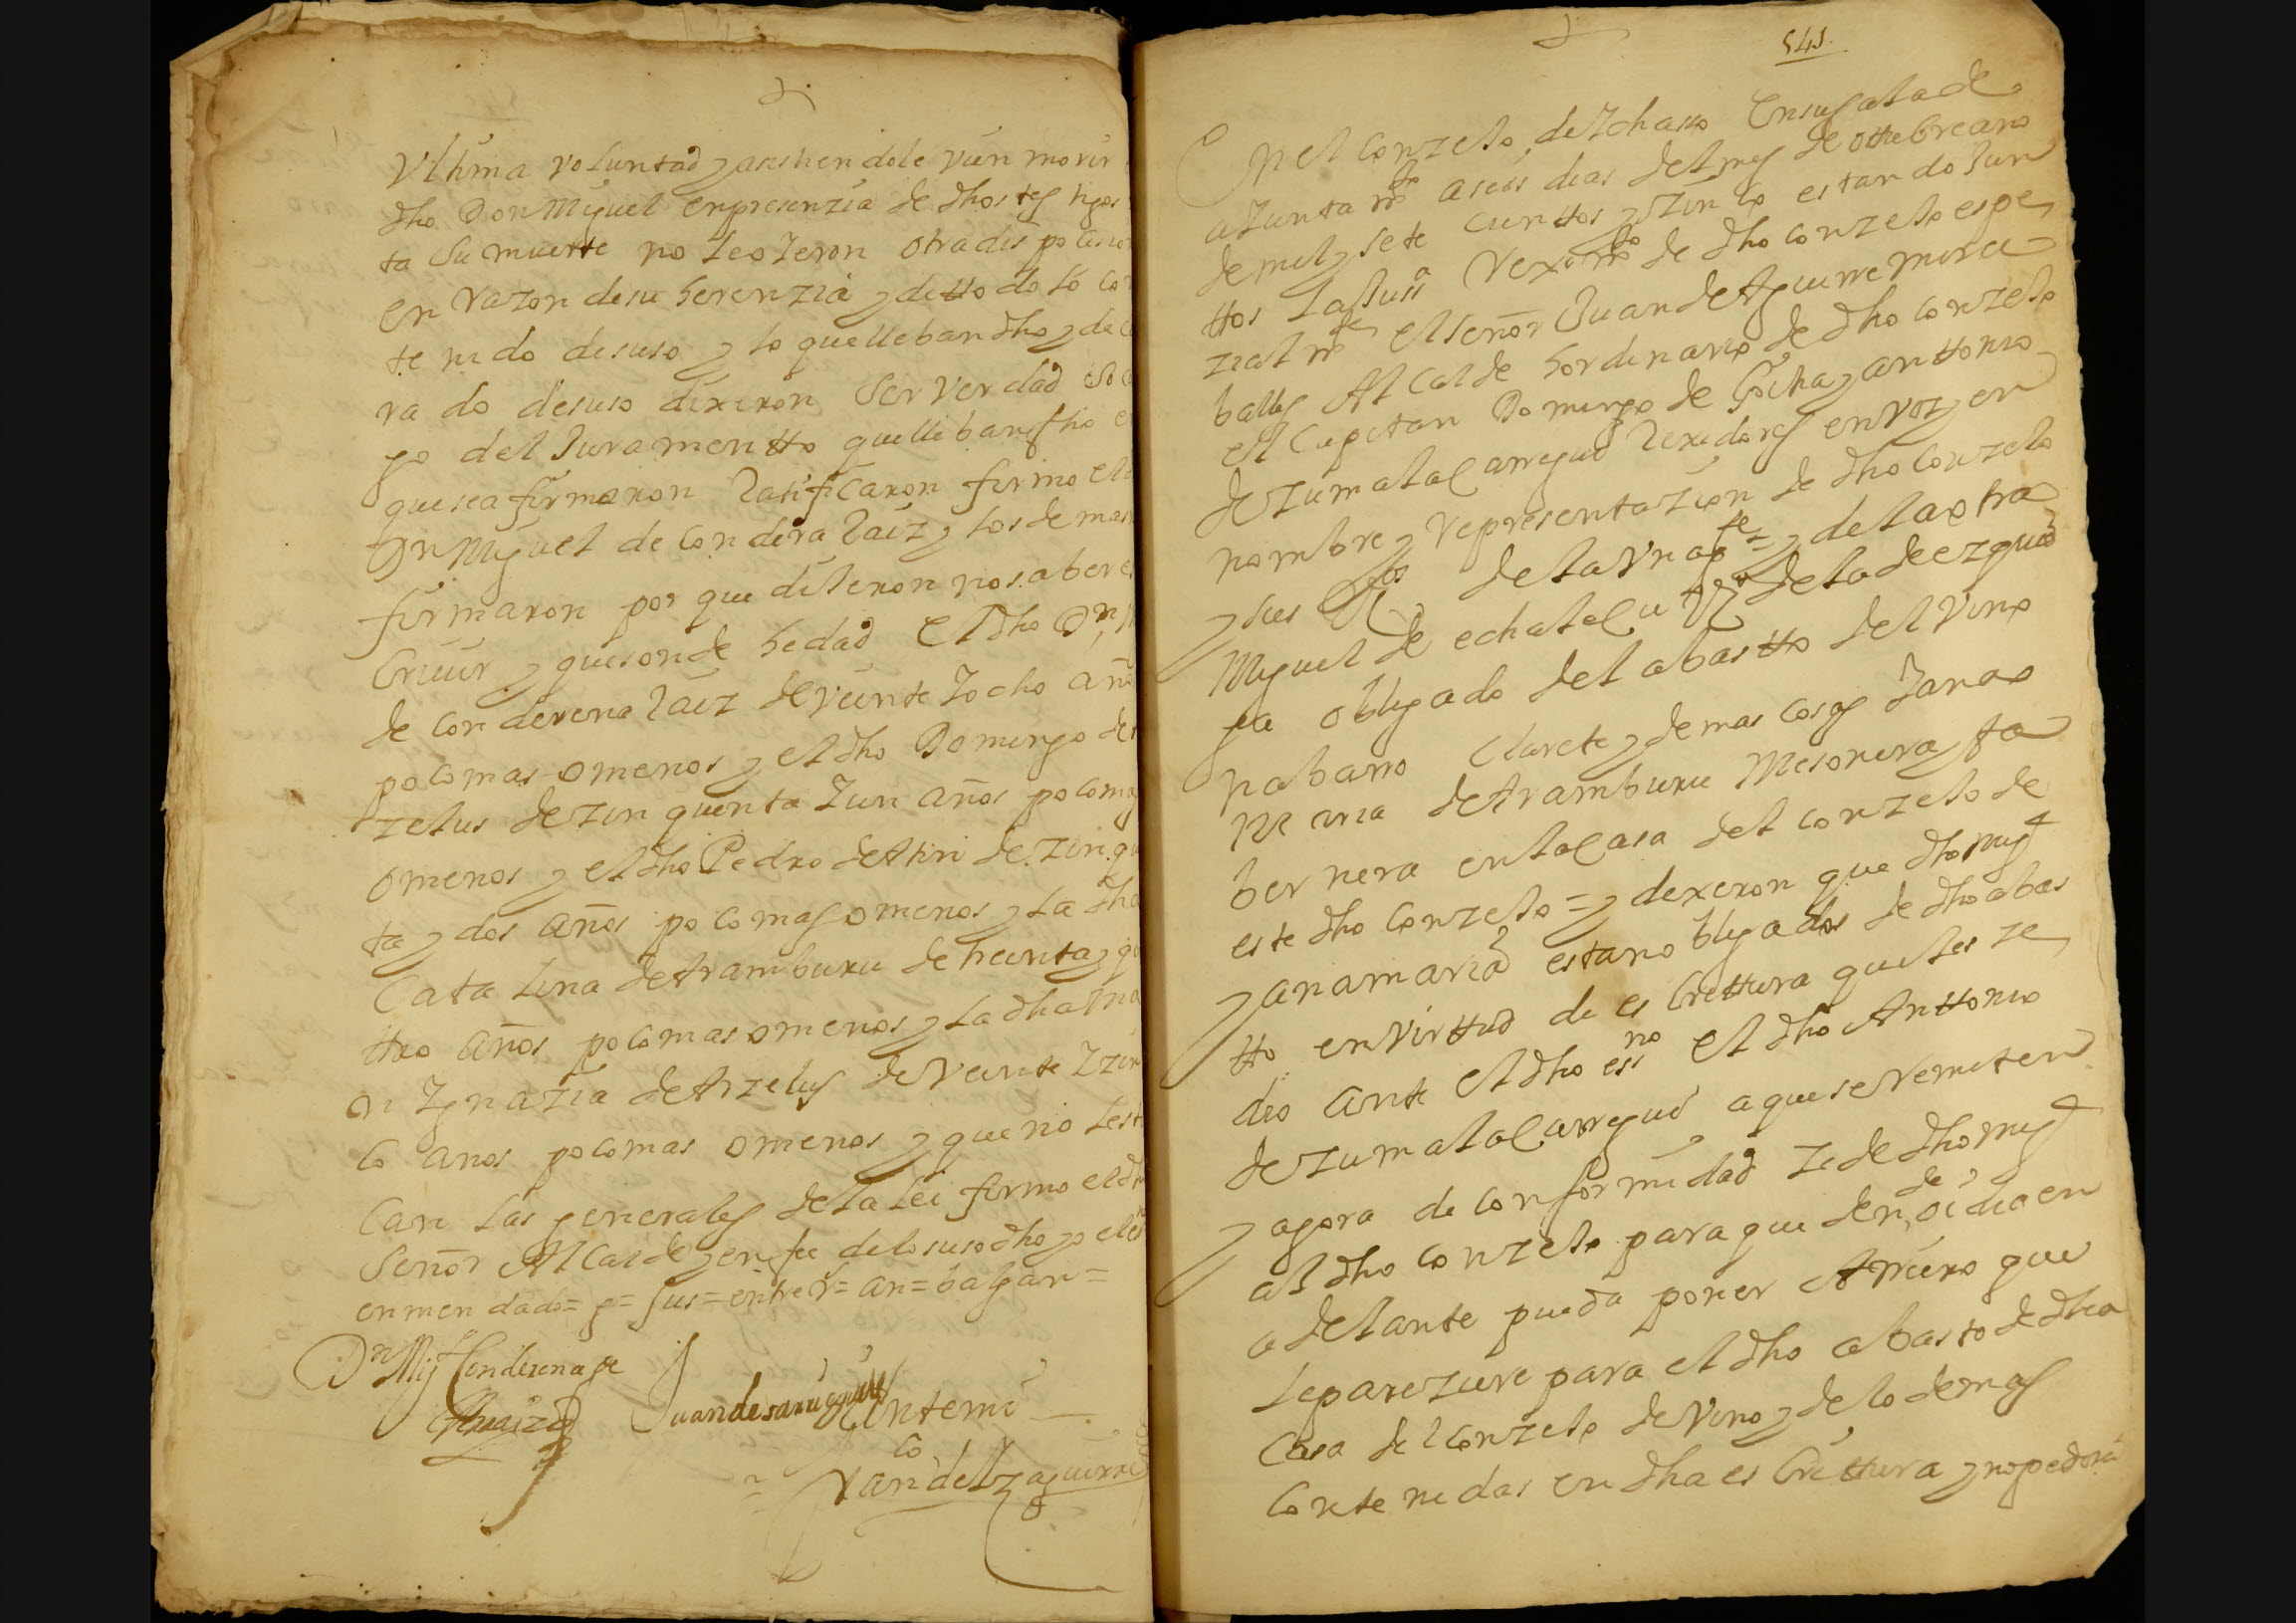 Vltima voluntad y asistiendole vien morir
dho Don Miguel en presenzia de dhos testigos
ta su muerte no le oieron otra dispo
en razon de su herenzia y de ttodo lo con
tenido de suso y lo que lleban dho y de
rado desuso dixeron ser verdad so
go del Juramentto que lleban fho
que se afirmaron Ratificaron firmo el
Dn Miguel de Condera Raiz y los demas
firmaron por que dileron no saber es
criuir y que son de hedad el dho Dn
de Conderena Raiz de veinte Iocho años
poco mas omenos y el dho Domingo de
zelus de zinquenta Iun años poco mas
omenos y el dho Pedro de de zinq
ta y dos años poco mas omenos y la dha
Catalina de Aramburu de treinta y qu
ttro años poco mas omenos y la dha Ma
ri Ignazia de Arzelus de veinte Izin
co anos poco mas omenos y que no les t
can las generales de la lei firmo el dho
Señor Alcalde y en fee de lo susodho yo el es
enmendado= g= sus= entre R= an= balgan=
Dn Migl Conderena
Rraiz Juan de Ante mi
Franco de Yzaguirre
541.
En el Conzelo de Ichasso En su sala de
aIuntamto a seis dias del mes de ottubre ano
de mil y sete cienttos y zinco estando Jun
ttos la Justa Reximto de dho conzelo espe
zialmte el señor Juan de Aguirre mira
balles Alcalde hordinario de dho conzelo
el Capitan Domingo de Goitia y anttonio
de zumalacarregui Rexidores en voz y en
nombre y representazion de dho Conzelo
y sus Vos de la vna pte y de la otra
Miguel de echatelcu Vo de la de ezquio
ga obligado del abastto del vino
nabarro Clarete y demas cosas Iana
Maria de Aramburu Mesonera y ta
bernera en la Casa del conzelo de
este dho Conzelo= y dexeron que dho migl
y ana maria estan obligados de dho abas
tto en virttud de escrittura que les ze
dio ante el dho essno el dho Anttonio
de zumalacarregui a que se remiten
y agora de conformidad zede dho migl
al dho conzelo para que den de oi dia en
adelante pueda poner Arriero que
le pareziere para el dho abasto de dha
Casa del conzelo de vino y de lo demas
contenidas en dha escrittura y no pedira